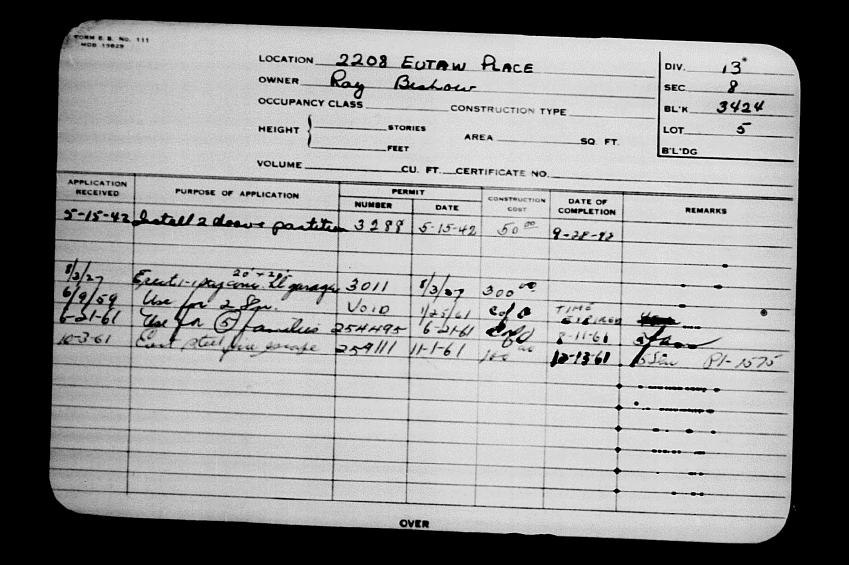 FORM B.B. NO. 111
MOD 15629
LOCATION 2208 EUTAW PLACE
OWNER Ray
OCCUPANCY CLASS CONSTRUCTION TYPE
HEIGHT { STORIES AREA SQ. FT.
FEET
VOLUME CU. FT. CERTIFICATE NO.
DIV. 13
SEC 8
BL'K 3424
LOT 5
B'L'DG
APPLICATION RECEIVED PURPOSE OF APPLICATION PERMIT NUMBER DATE CONSTRUCTION COST DATE OF COMPLETION REMARKS
5-15-42 Install 2 doors partition 3288 5-15-42 50 00 9-28-42
20 x 20
8/3/27 Erect garage 3011 8/3/27 300 00
6/9/59 Use for 2 VOID 1/25/61 C of O TIME EXPIRED
6-21-61 Use for 5 families 254495 6-21-61 C of O 8-11-61
10-3-61 Erect steel fire escape 259111 11-1-61 12-13-61
OVER